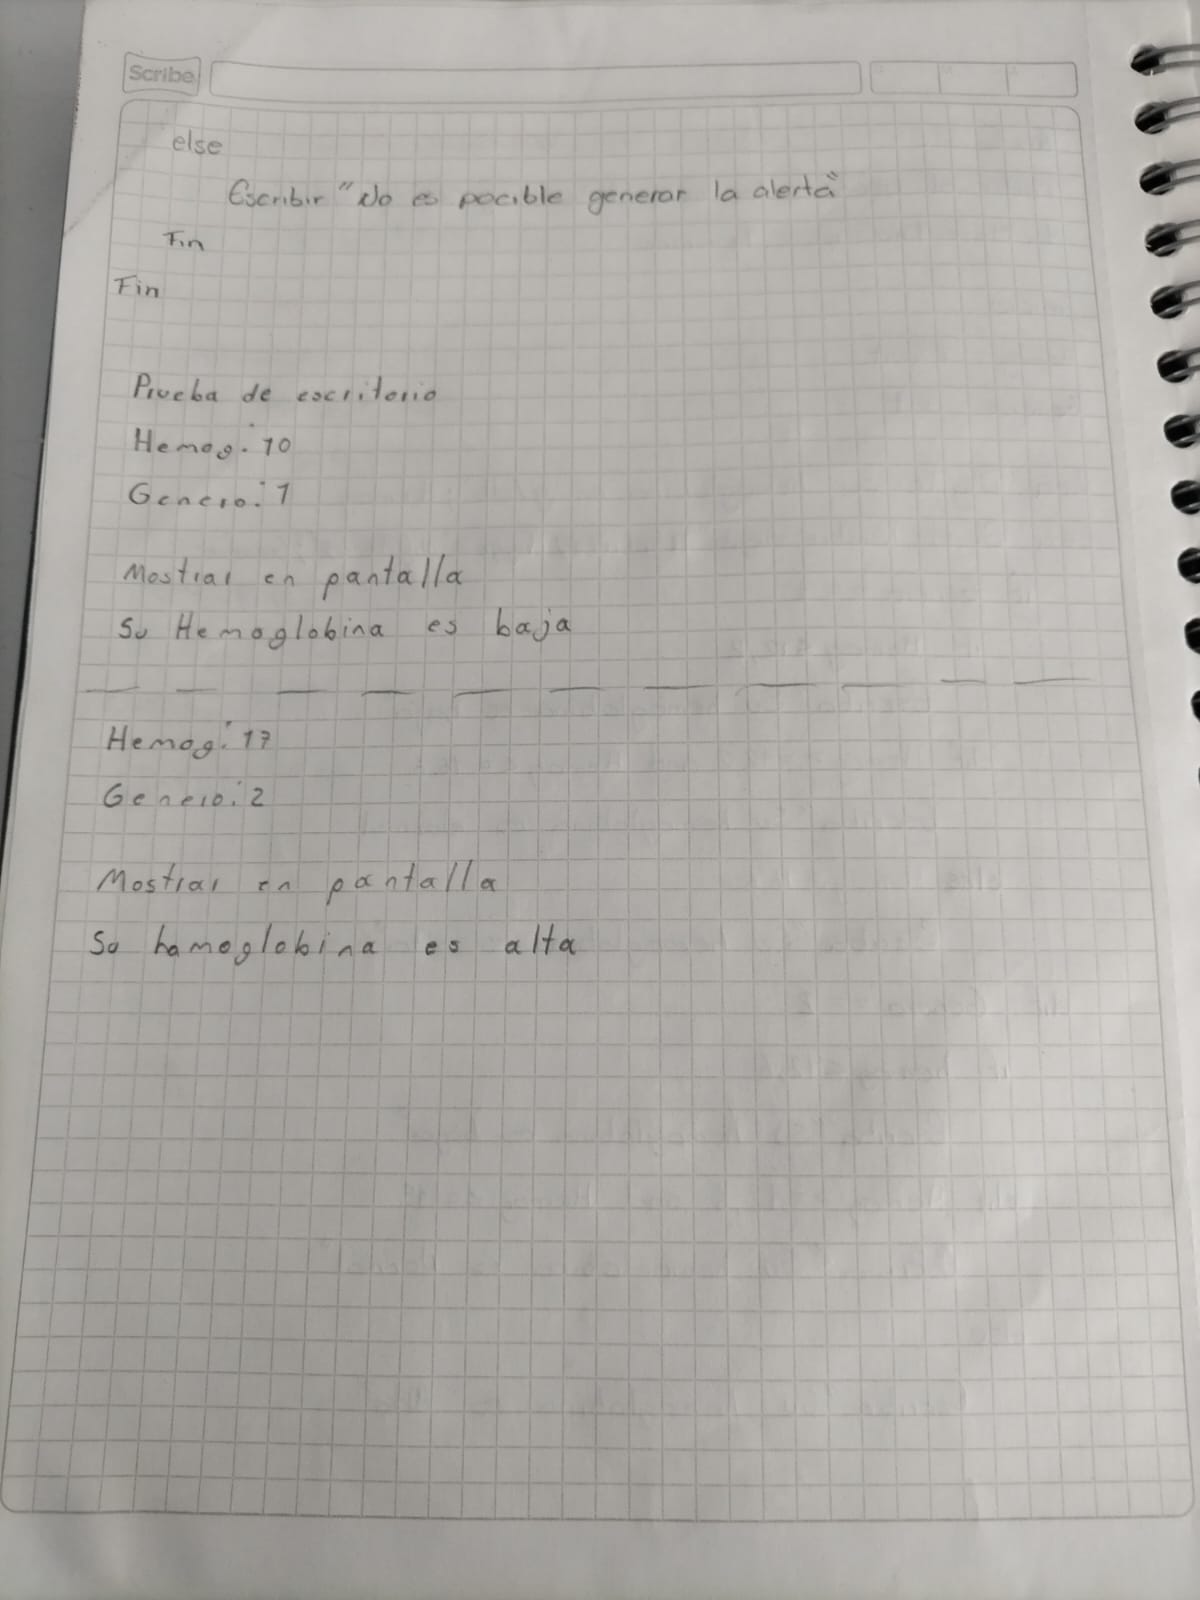 Scribe
else
Escribir "No es pocible generar la alerta"
Fin
Fin
Prueba de escritorio
Hemog: 10
Genero: 1
Mostrar en pantalla
Su Hemoglobina es baja
Hemog: 17
Genero: 2
Mostrar en pantalla
Su hamoglobina es alta